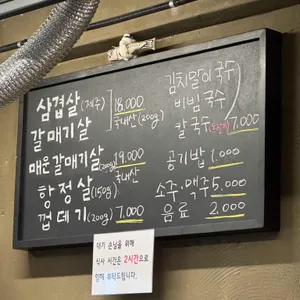 삼겹살 (제주) 18.000
갈매기살 국내산(200g)
매운 갈매기살 (200g) 19.000
항정살 (150g) 국내산
껍데기 (200g) 7.000
김치말이 국수
비빔 국수
칼국수 7.000
공기밥 1.000
소주·맥주 5.000
음료 2.000
대기 손님을 위해
식사 시간은 2시간으로
양해 부탁드립니다.